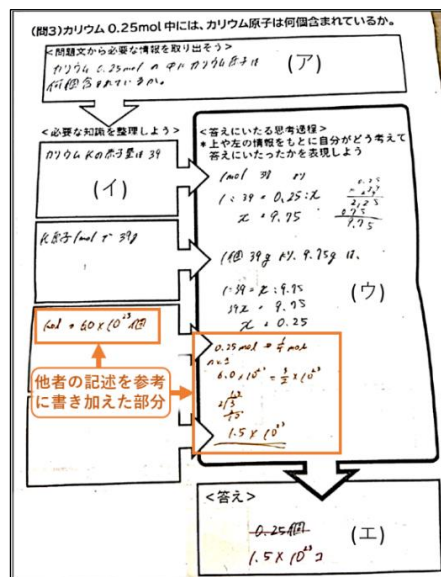 (問3)カリウム0.25mol中には、カリウム原子は何個含まれているか。
<問題文から必要な情報を取り出そう>
(ア)
カリウム0.25molの中にカリウム原子は
何個含まれているか。
<必要な知識を整理しよう>
カリウムKの原子量は39
(イ)
K原子1molで39g
1mol = 6.0×10²³個
他者の記述を参考
に書き加えた部分
<答えにいたる思考過程>
*上や左の情報をもとに自分がどう考えて
答えにいたったかを表現しよう
1mol 39 より
1:39=0.25:x
x=9.75
1個39gより、9.75gは、
(ウ)
1:39=x:9.75
39x=9.75
x=0.25
0.25mol=
1.5×10²³
<答え>
0.25個
(エ)
1.5×10²³コ